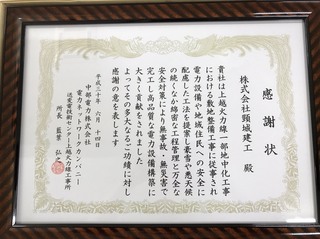 感謝状
株式会社頸城建工 殿
貴社は上越火力線一部地中化工事
における敷地整備工事に従事され
電力設備や地域住民への安全に
配慮した工法を提案し豪雪や悪天候
の続くなか綿密な工程管理と万全な
安全対策により無事故・無災害で
完工し高品質な電力設備構築に
大きく貢献をされました
よってその多大なるご功績に対し
感謝の意を表します
平成三十年 六月 十四日
中部電力株式会社
電力ネットワークカンパニー
送変電技術センター上越火力線工事所
所長